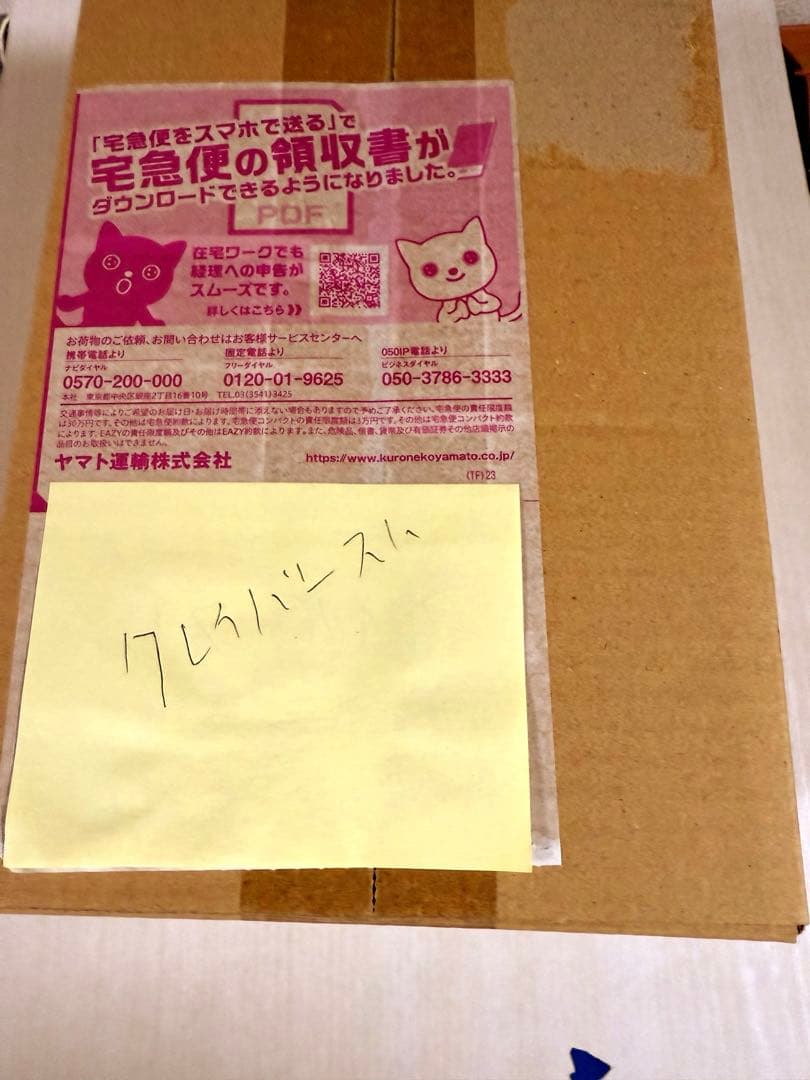 「宅急便をスマホで送る」で
宅急便の領収書が
ダウンロードできるようになりました。
PDF
在宅ワークでも
経理への申告が
スムーズです。
詳しくはこちら》》
お荷物のご依頼、お問い合わせはお客様サービスセンターへ
携帯電話より 固定電話より 050IP電話より
ナビダイヤル フリーダイヤル ビジネスダイヤル
0570-200-000 0120-01-9625 050-3786-3333
本社 東京都中央区銀座2丁目16番10号 TEL.03(3541)3425
交通事情等によりご希望のお届け日・お届け時間帯に添えない場合もありますので予めご了承ください。宅急便の責任限度額
は30万円です。その他は宅急便約款によります。宅急便コンパクトの責任限度額は3万円です。その他は宅急便コンパクト約款
によります。EAZYの責任限度額及びその他はEAZY約款によります。また、危険品、信書、貨幣及び有価証券その他店頭掲示の
品目のお取扱いはできません。
ヤマト運輸株式会社 https://www.kuronekoyamato.co.jp/
(TF)23
クレイバースト